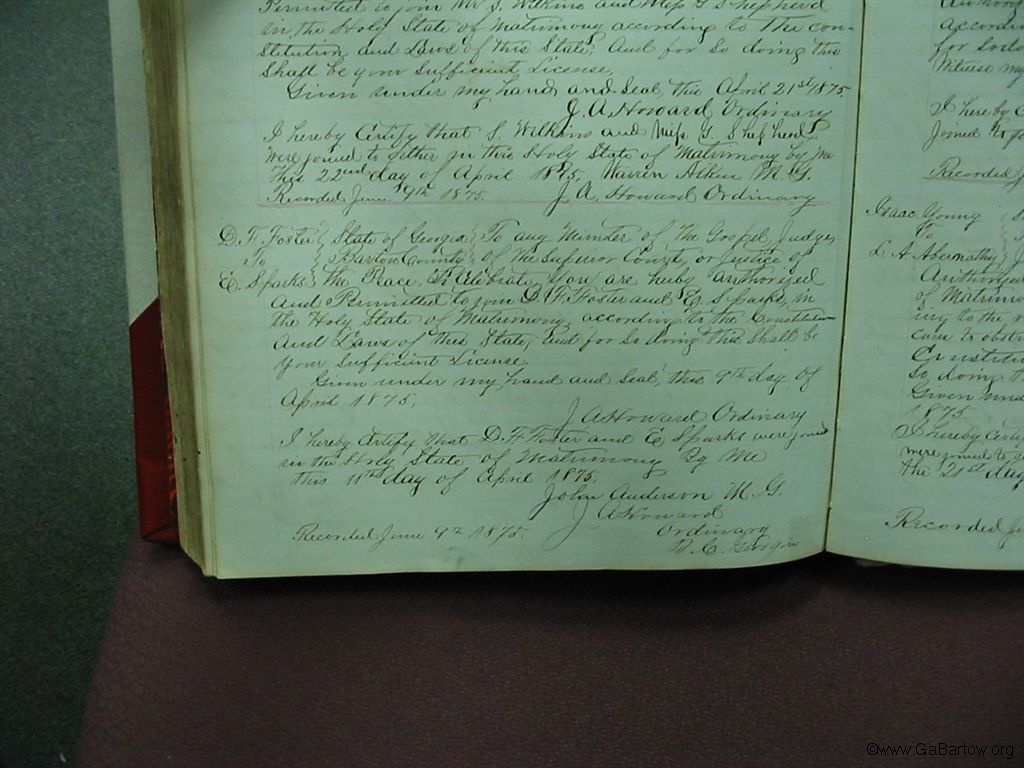 Permitted to join Mr S. Wilkins and Miss G. Shepherd
in the Holy State of Matrimony according to the con-
stitution and Laws of this State, And for So doing this
Shall be your Sufficient License,
Given under my hand and Seal this April 21st 1875.
J. A. Howard Ordinary
I hereby Certify that S. Wilkins and Miss G. Shepherd
Were joined to gether in this Holy State of Matrimony by me
this 22nd day of April 1875, Warren Akin M. G.
Recorded June 9th 1875. J. A. Howard Ordinary
D. F. Foster State of Georgia To any Minister of the Gospel Judge,
To Bartow County of the Superior Court, or Justice of
E. Sparks the Peace to Celebrate, You are hereby authorized
And Permitted to join D. F. Foster and E. Sparks, in
the Holy State of Matrimony, according to the Constitution
and Laws of this State, and for So doing this Shall be
Your Sufficient License.
Given under my hand and Seal, this 9th day of
April 1875.
J A Howard Ordinary
I hereby Certify that D. F. Foster and E. Sparks were joined
in the Holy State of Matrimony By Me
this 11th day of April 1875.
John Anderson M. G.
J A Howard
Recorded June 9th 1875. Ordinary
B. C. Georgia
accordin
for So do
Witness my
I hereby C
Joined to ge
Recorded J
Isaac Young
To
L. A. Abernathy
Authorized
of Matrimo
ing to the
Constitu
So doing t
Given und
1875
I hereby Certi
were joined to g
the 21st day
Recorded Ju
©www.GaBartow.org